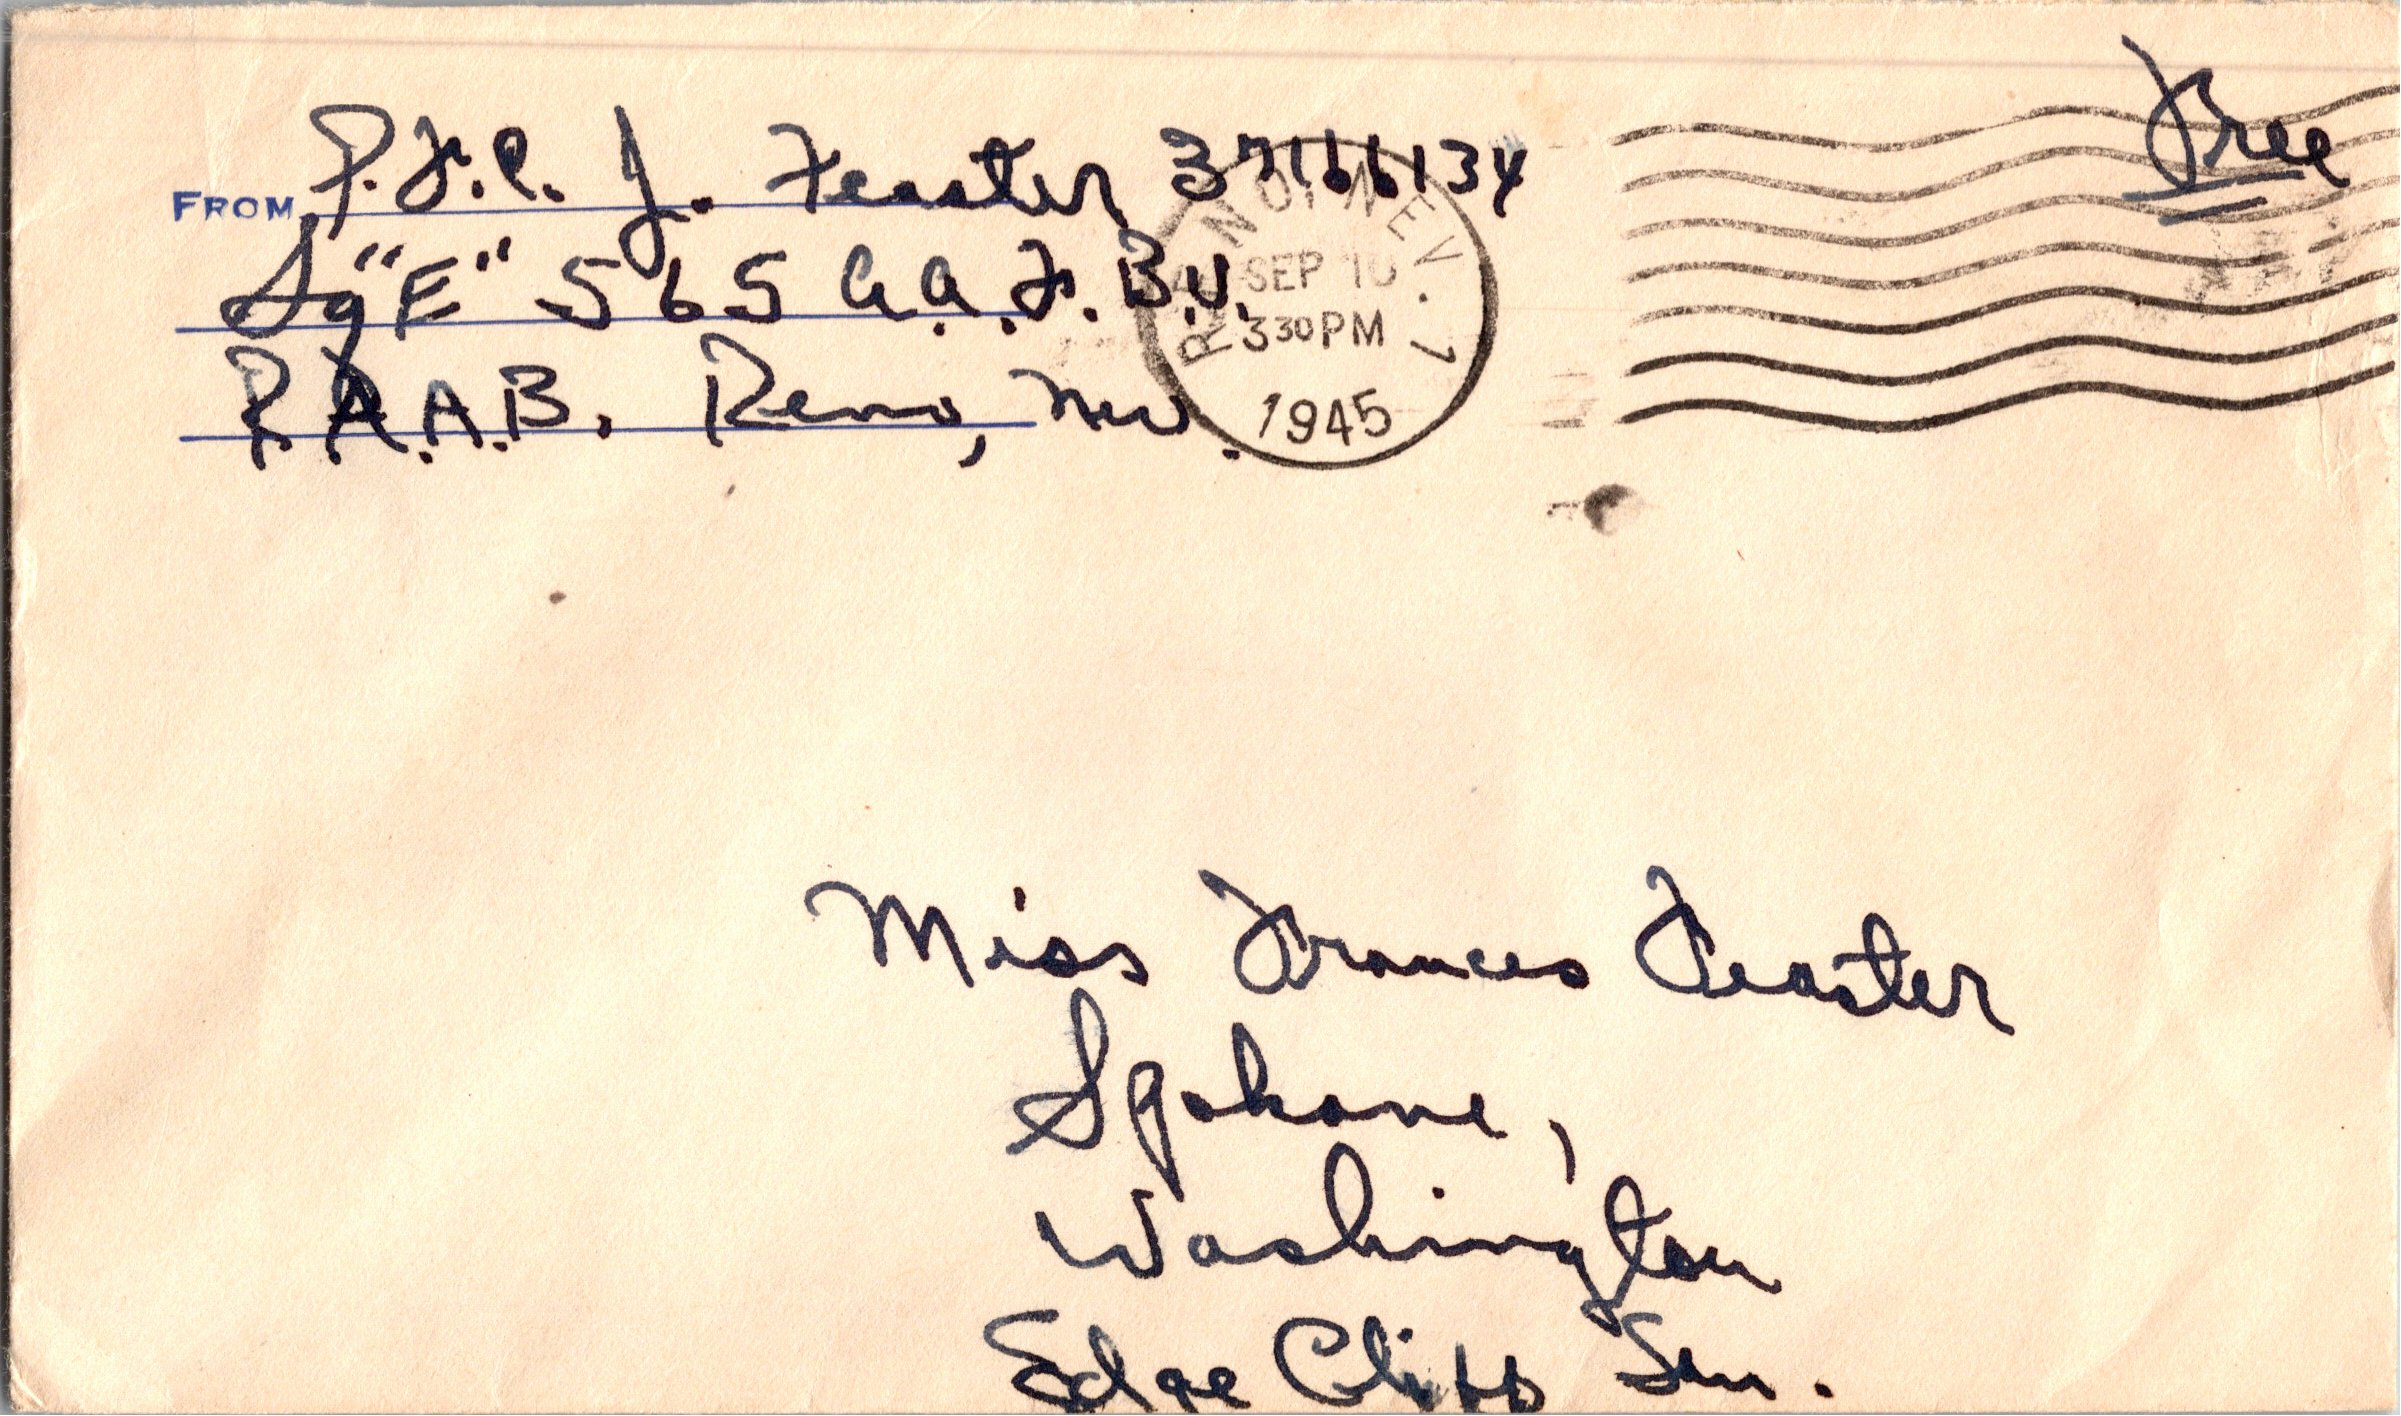 Free
FROM P.F.C. J. Feaster 37166134
Sq "E" 565 A.A.F.B.U.
R.A.A.B. Reno, Nev.
RENO, NEV. 1
SEP 10
3 30 PM
1945
Miss Frances Feaster
Spokane,
Washington
Edge Cliff San.